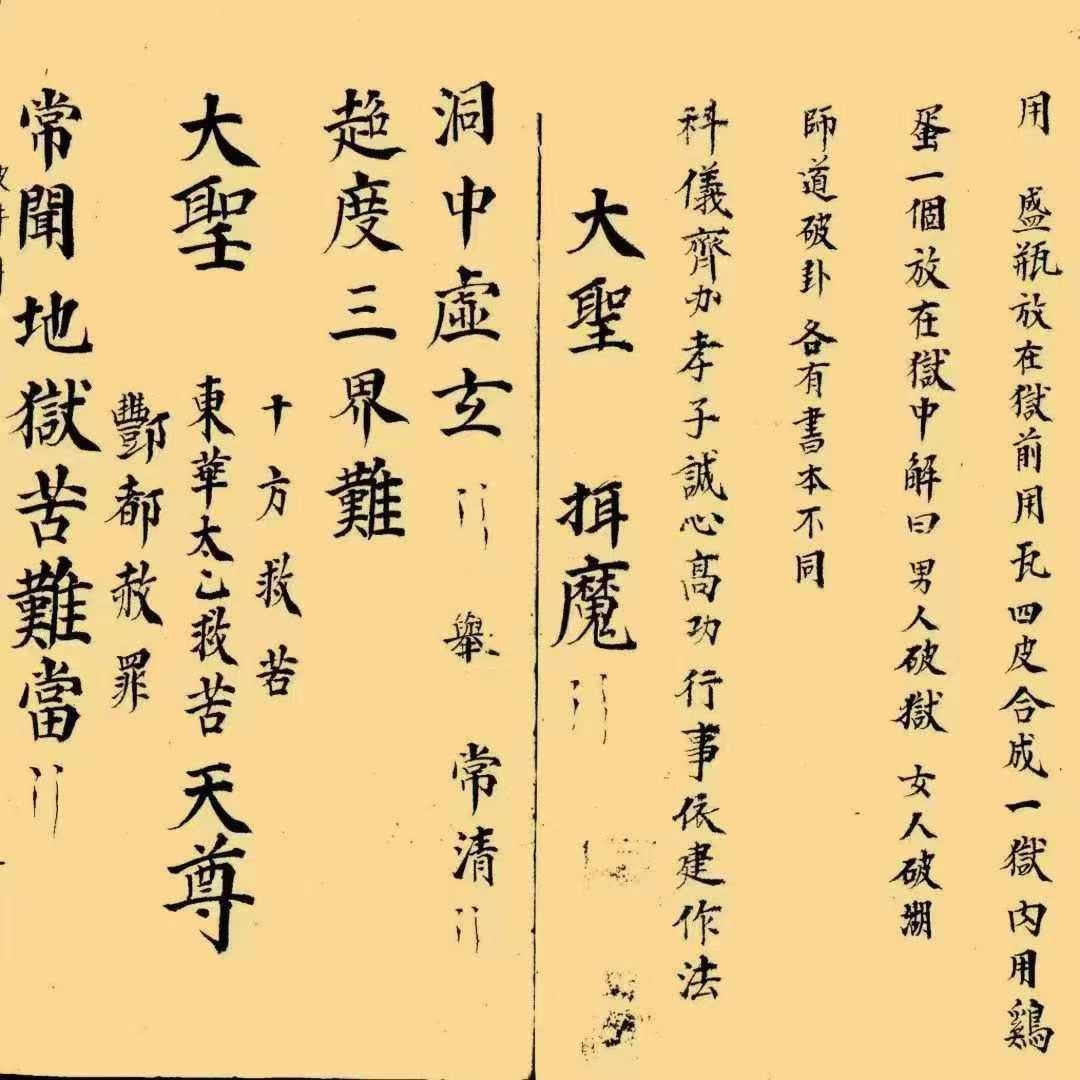 用 盛瓶放在獄前用瓦四皮合成一獄内用鷄
蛋一個放在獄中解曰男人破獄 女人破湖
師道破卦各有書本不同
科儀齊办孝子誠心髙功行事依建作法
大聖 揖魔
洞中虛玄 舉 常清
超度三界難
十方救苦
大聖 東華太乙救苦天尊
酆都赦罪
常聞地獄苦難當